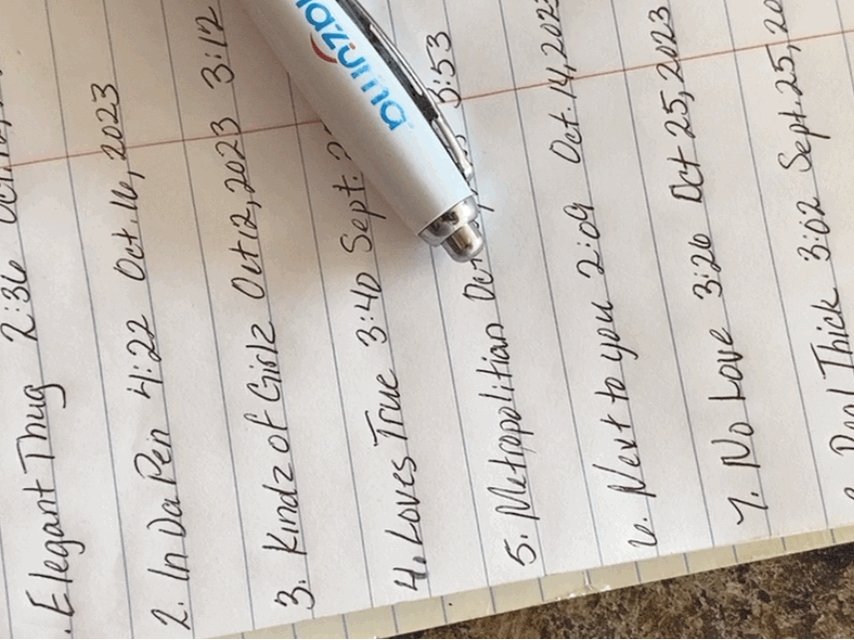 . Elegant Thug 2:36
2. In Da Pen 4:22 Oct. 16, 2023
3. Kindz of Girlz Oct 12, 2023 3:12
4. Loves True 3:40 Sept. 2
5. Metropolitian Oct 3:53
6. Next to you 2:09 Oct. 14, 2023
7. No Love 3:26 Oct 25, 2023
Real Thick 3:02 Sept. 25, 20
azurma